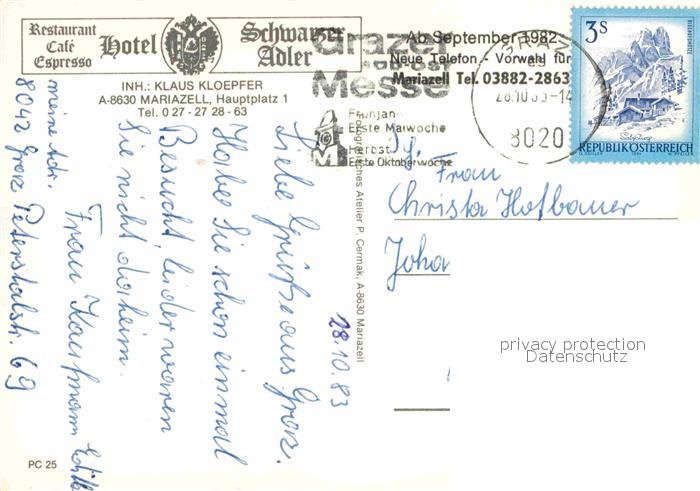 Restaurant
Café
Espresso
Hotel
Schwarzer
Adler
INH.: KLAUS KLOEPFER
A-8630 MARIAZELL, Hauptplatz 1
Tel. 0 27 - 27 28 - 63
Grazer
Messe
Frühjahr
Erste Maiwoche
Herbst
Erste Oktoberwoche
Ab September 1982
Neue Telefon - Vorwahl für
Mariazell Tel. 03882-2863
GRAZ
28.10.83-14
8020
3S
REPUBLIK ÖSTERREICH
Liebe Grüße aus Graz.
Habe Sie schon einmal
Besucht, leider waren
Sie nicht daheim.
Frau Kaufmann
meine Adr.
8042 Graz Peterstalstr. 69
28.10.83
Fotografisches Atelier P. Cermak, A-8630 Mariazell
Sg.
Frau
Christa Hofbauer
Joha
privacy protection
Datenschutz
PC 25